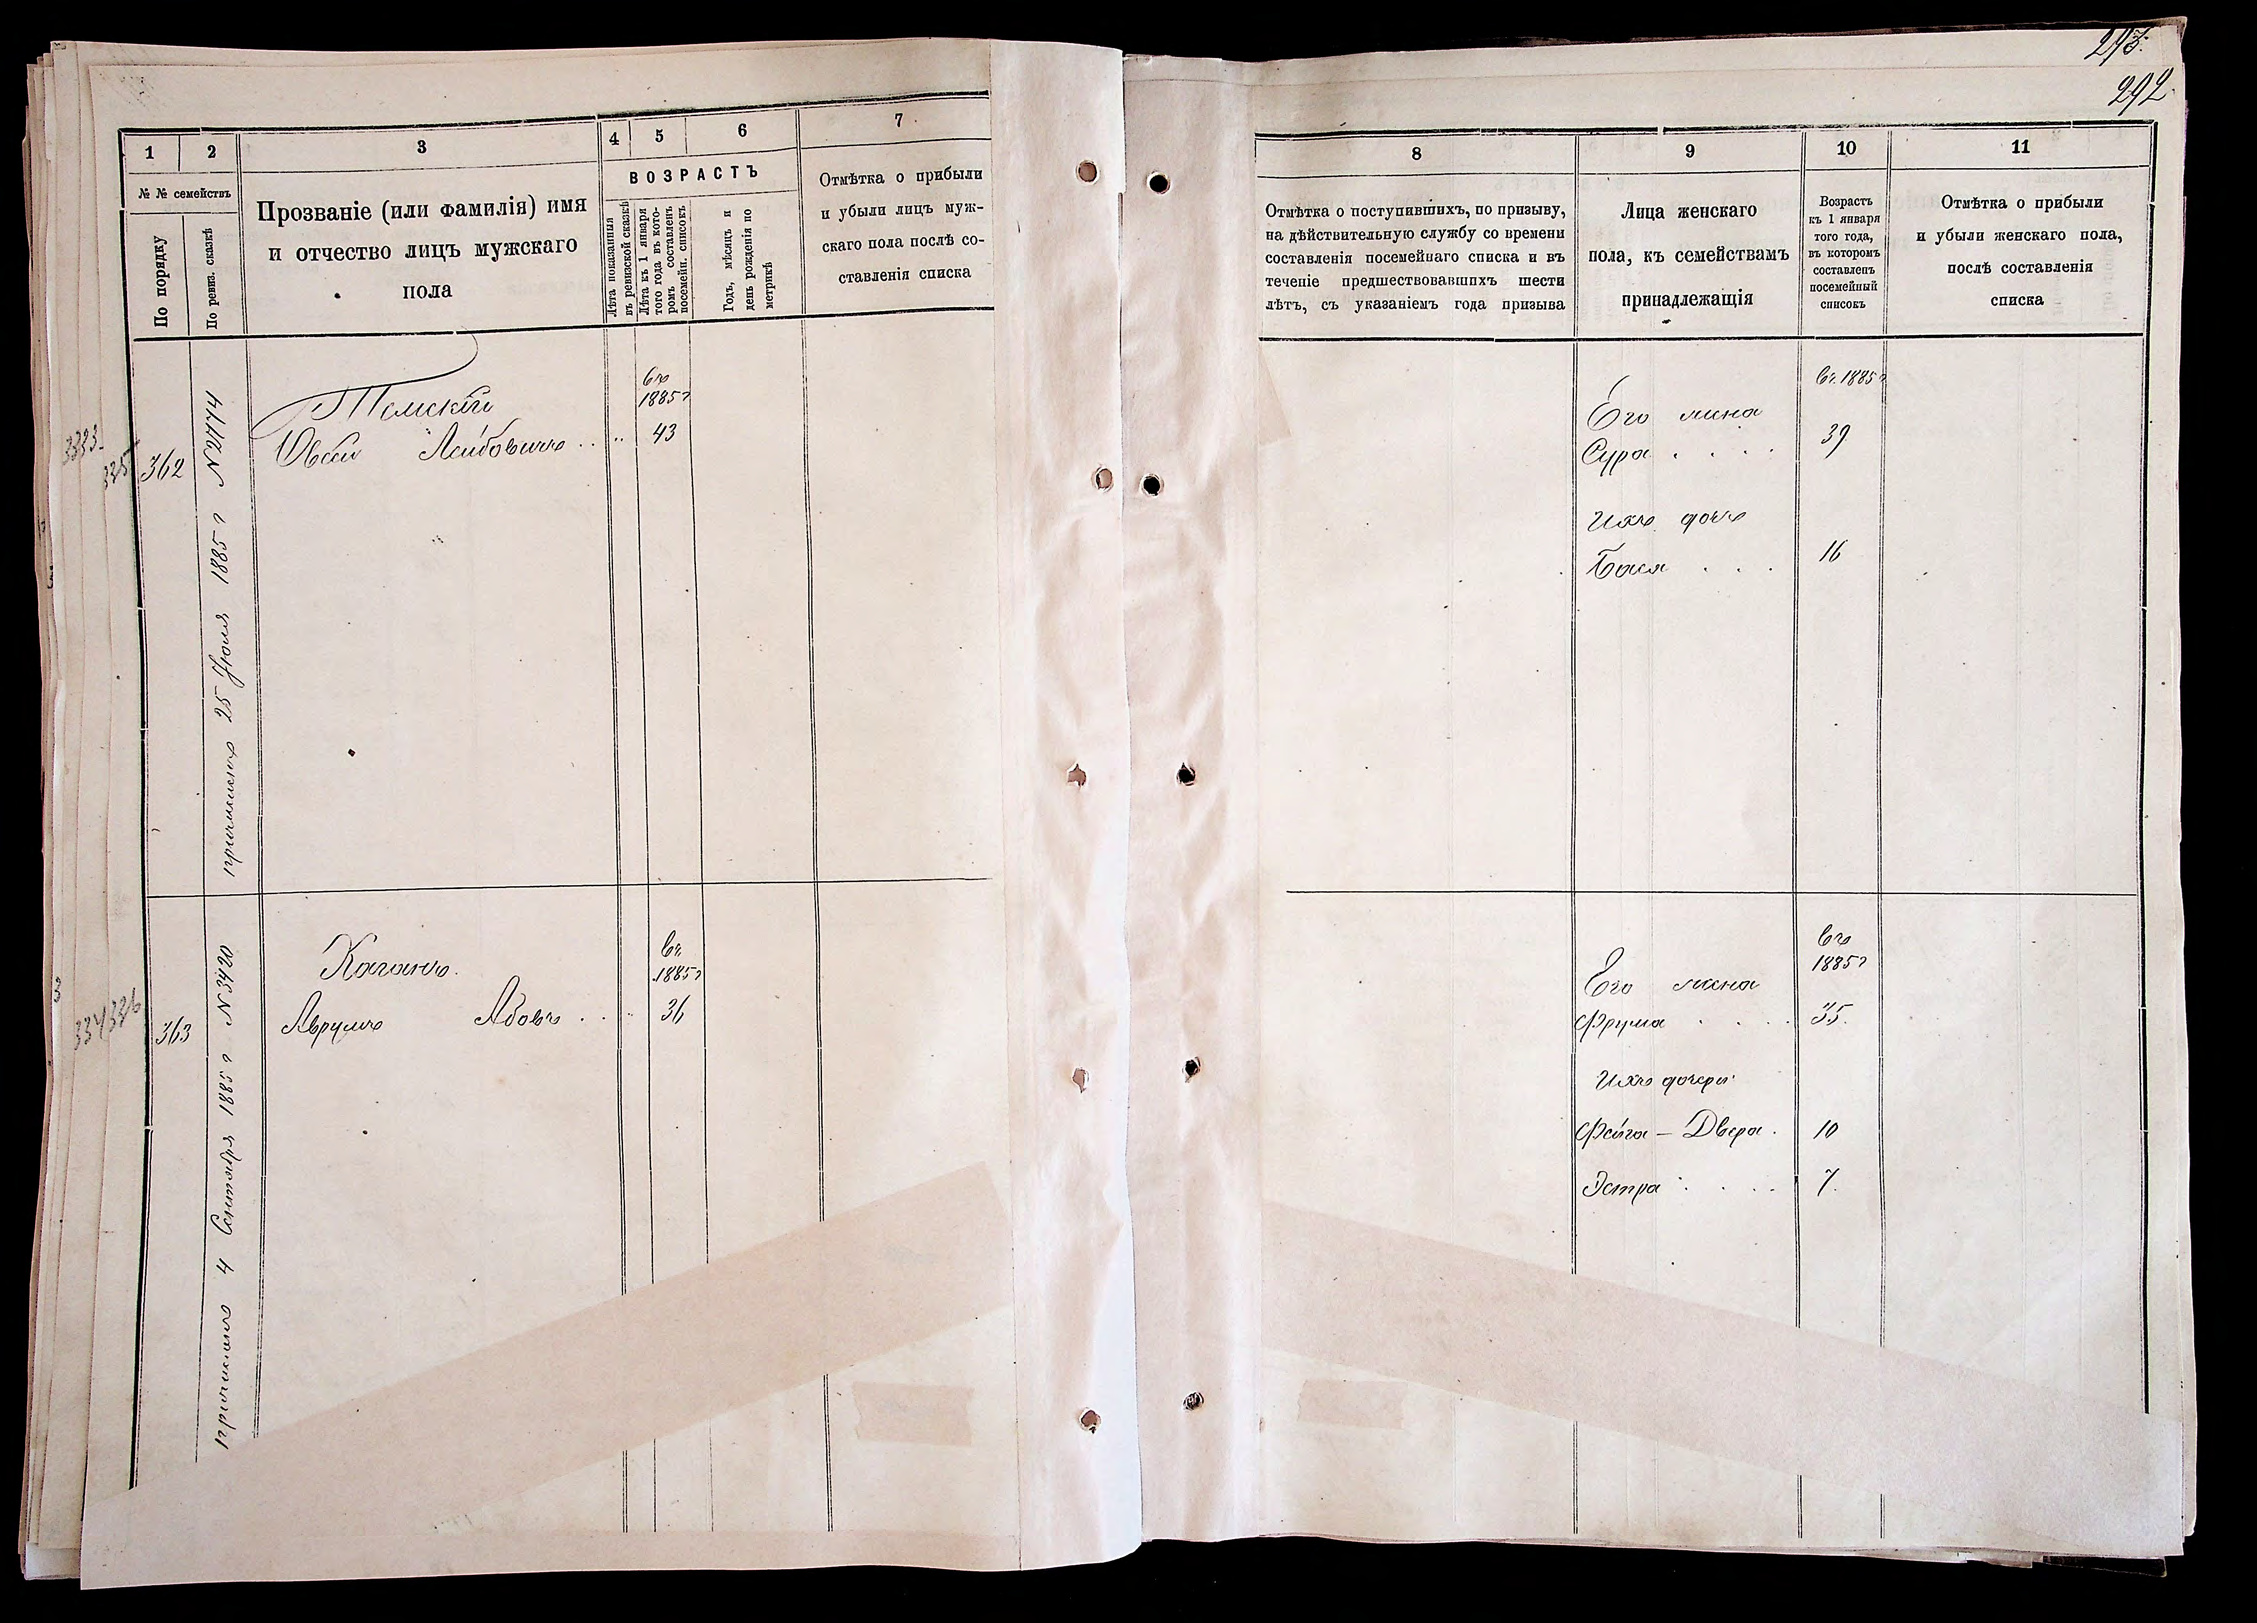 293.
292.
1
2
3
4
5
6
7
№ № семействъ
По порядку
По ревиз. сказкѣ
Прозваніе (или фамилія) имя
и отчество лицъ мужскаго
пола
ВОЗРАСТЪ
Лѣта показанныя
въ ревизской сказкѣ
Лѣта къ 1 января
того года въ кото-
ромъ составленъ
посемейн. списокъ
Годъ, мѣсяцъ и
день рожденія по
метрикѣ
Отмѣтка о прибыли
и убыли лицъ муж-
скаго пола послѣ со-
ставленія списка
8
9
10
11
Отмѣтка о поступившихъ, по призыву,
на дѣйствительную службу со времени
составленія посемейнаго списка и въ
теченіе предшествовавшихъ шести
лѣтъ, съ указаніемъ года призыва
Лица женскаго
пола, къ семействамъ
принадлежащія
Возрастъ
къ 1 января
того года,
въ которомъ
составленъ
посемейный
списокъ
Отмѣтка о прибыли
и убыли женскаго пола,
послѣ составленія
списка
335
362
причисленъ 25 Іюля 1885 г №2774
Томскій
Овсей Лейбовичъ
въ
1885 г
43
Его жена
Сура
въ 1885 г
39
Ихъ дочь
Бася
16
334 336
363
причисленъ 4 Сентября 1885 г №3420
Каганъ.
Аврумъ Абовъ
въ
1885 г
36
Его жена
Фрума
въ
1885 г
35.
Ихъ дочери
Фейга – Двера.
10
Эстра
7.